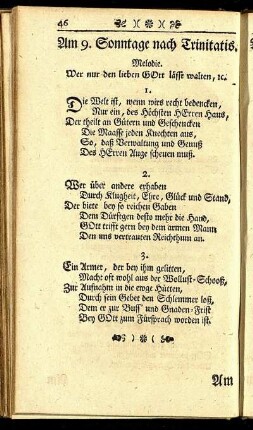 46
Am 9. Sonntage nach Trinitatis.
Melodie.
Wer nur den lieben GOtt läßt walten, ꝛc.
1.
Die Welt ist, wenn wirs recht bedencken,
Nur ein, des Höchsten HErren Haus,
Der theilt an Gütern und Geschencken
Die Maasse jeden Knechten aus,
So, daß Verwaltung und Genuß
Des HErren Auge scheuen muß.
2.
Wer über andere erhaben
Durch Klugheit, Ehre, Glück und Stand,
Der biete bey so reichen Gaben
Dem Dürftigen desto mehr die Hand,
GOtt trifft gern bey dem armen Mann
Den uns vertrauten Reichthum an.
3.
Ein Armer, der bey ihm gelitten,
Macht oft wohl aus der Wollust-Schooß,
Zur Aufnahm in die ewge Hütten,
Durch sein Gebet den Schlemmer loß,
Dem er zur Buß' und Gnaden-Frist
Bey GOtt zum Fürsprach worden ist.
Am